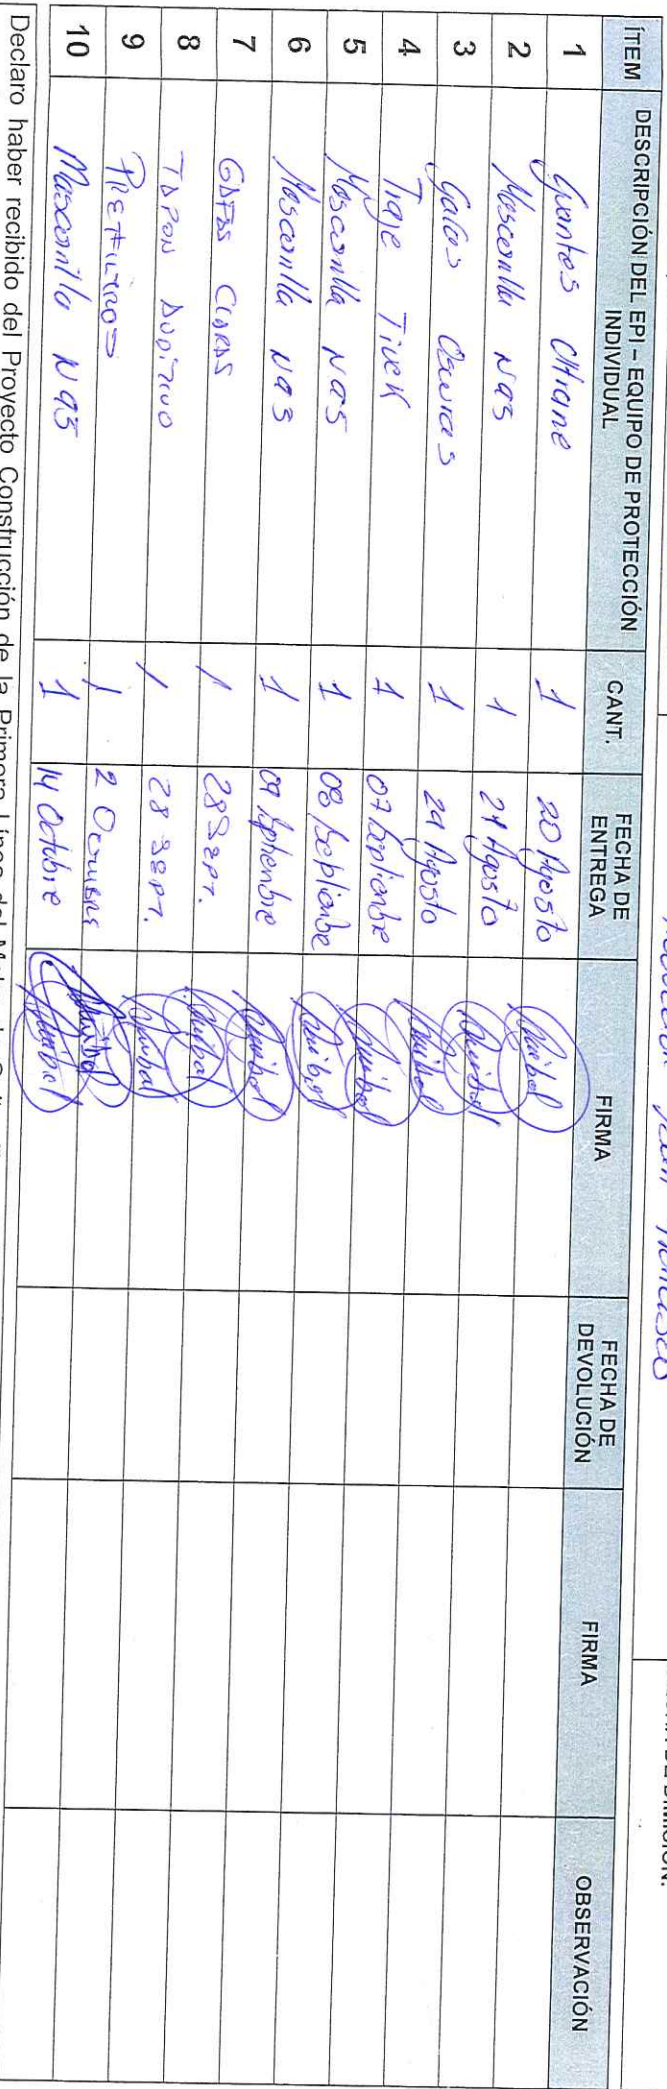 ÍTEM DESCRIPCIÓN DEL EPI – EQUIPO DE PROTECCIÓN INDIVIDUAL CANT. FECHA DE ENTREGA FIRMA FECHA DE DEVOLUCIÓN FIRMA OBSERVACIÓN
1 Guantes 1 20 Agosto
2 Mascarilla N95 1 24 Agosto
3 Gafas Oscuras 1 29 Agosto
4 Traje Tivek 1 07 Septiembre
5 Mascarilla N95 1 08 Septiembre
6 Mascarilla N95 1 09 Septiembre
7 GAFAS CLARAS 1 28 SEPT.
8 TAPON AUDITIVO 1 28 SEPT.
9 PREFILTROS 1 2 OCTUBRE
10 Mascarilla N95 1 14 Octubre
Declaro haber recibido del Proyecto Construcción de la Primera Línea del Metro de